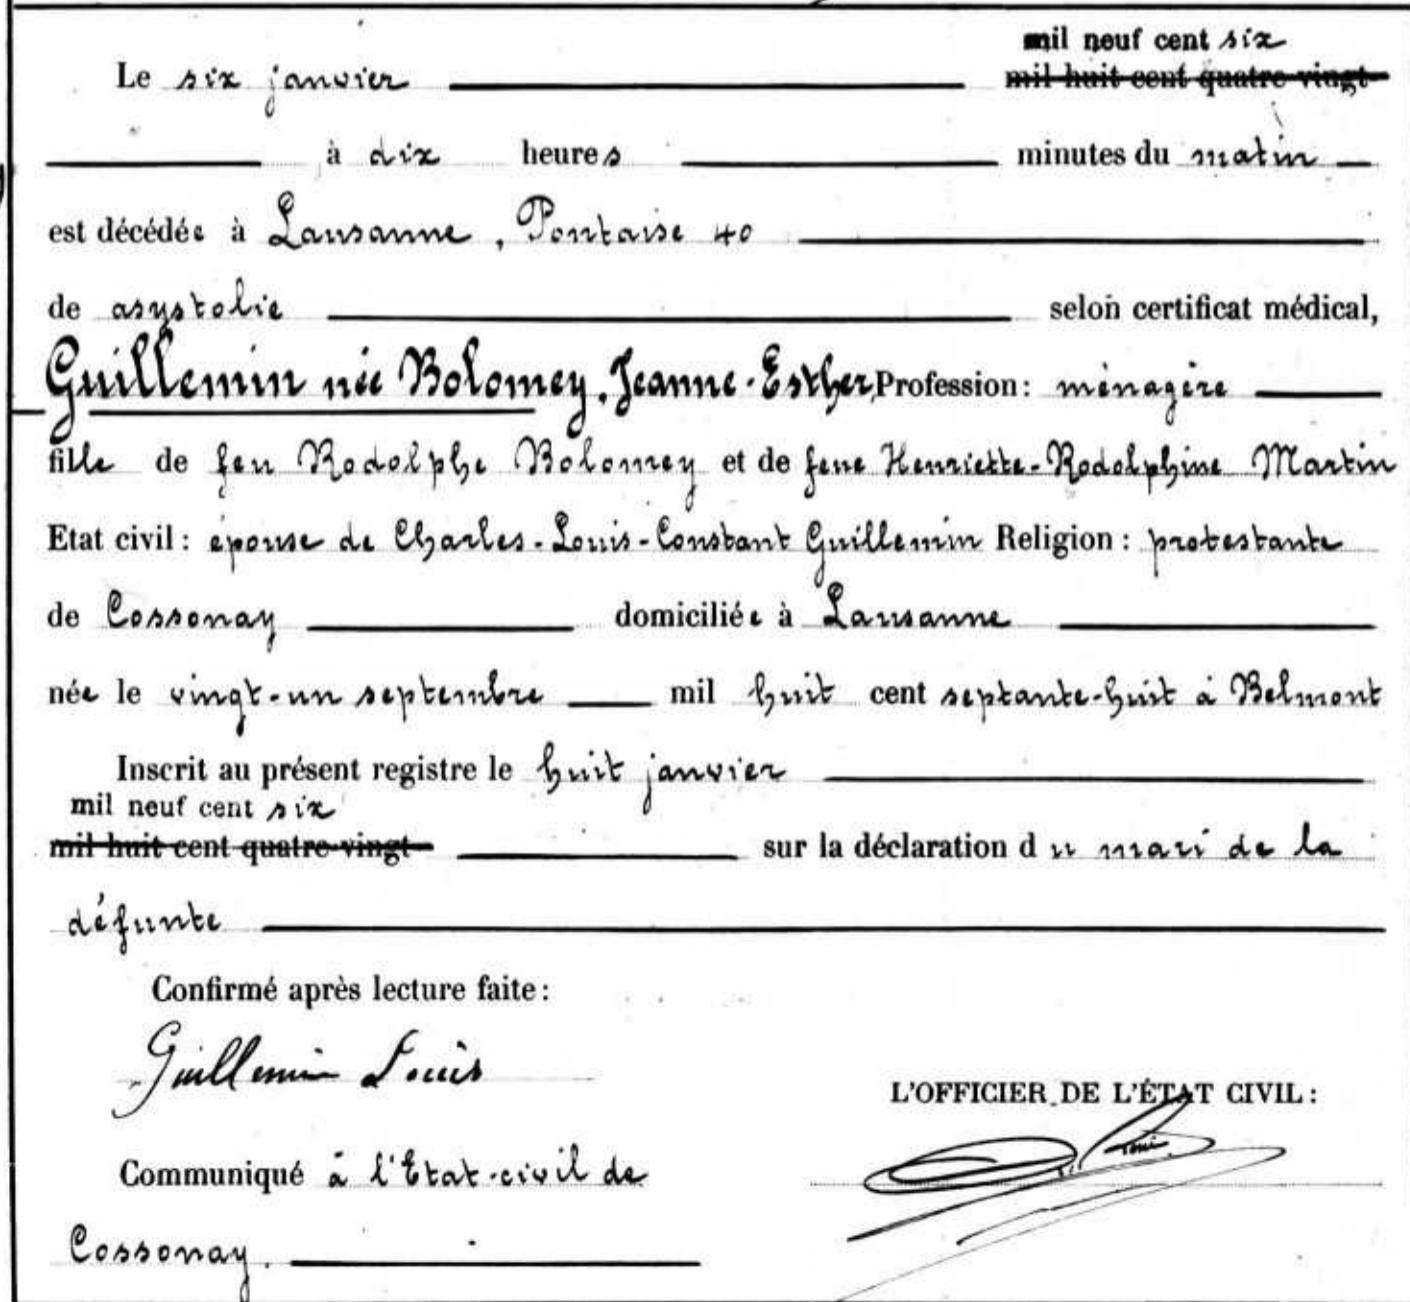 mil neuf cent six
Le six janvier mil huit cent quatre-vingt-
à dix heures minutes du matin
est décédée à Lausanne, Pontaise 40
de asystolie selon certificat médical,
Guillemin née Bolomey, Jeanne-Esther, Profession: ménagère
fille de feu Rodolphe Bolomey et de feue Henriette-Rodolphine Martin
Etat civil: épouse de Charles-Louis-Constant Guillemin Religion: protestante
de Cossonay domiciliée à Lausanne
née le vingt-un septembre mil huit cent septante-huit à Belmont
Inscrit au présent registre le huit janvier
mil neuf cent six
mil huit cent quatre-vingt- sur la déclaration du mari de la
défunte
Confirmé après lecture faite:
Guillemin Louis
L'OFFICIER DE L'ÉTAT CIVIL:
Communiqué à l'Etat-civil de
Cossonay.